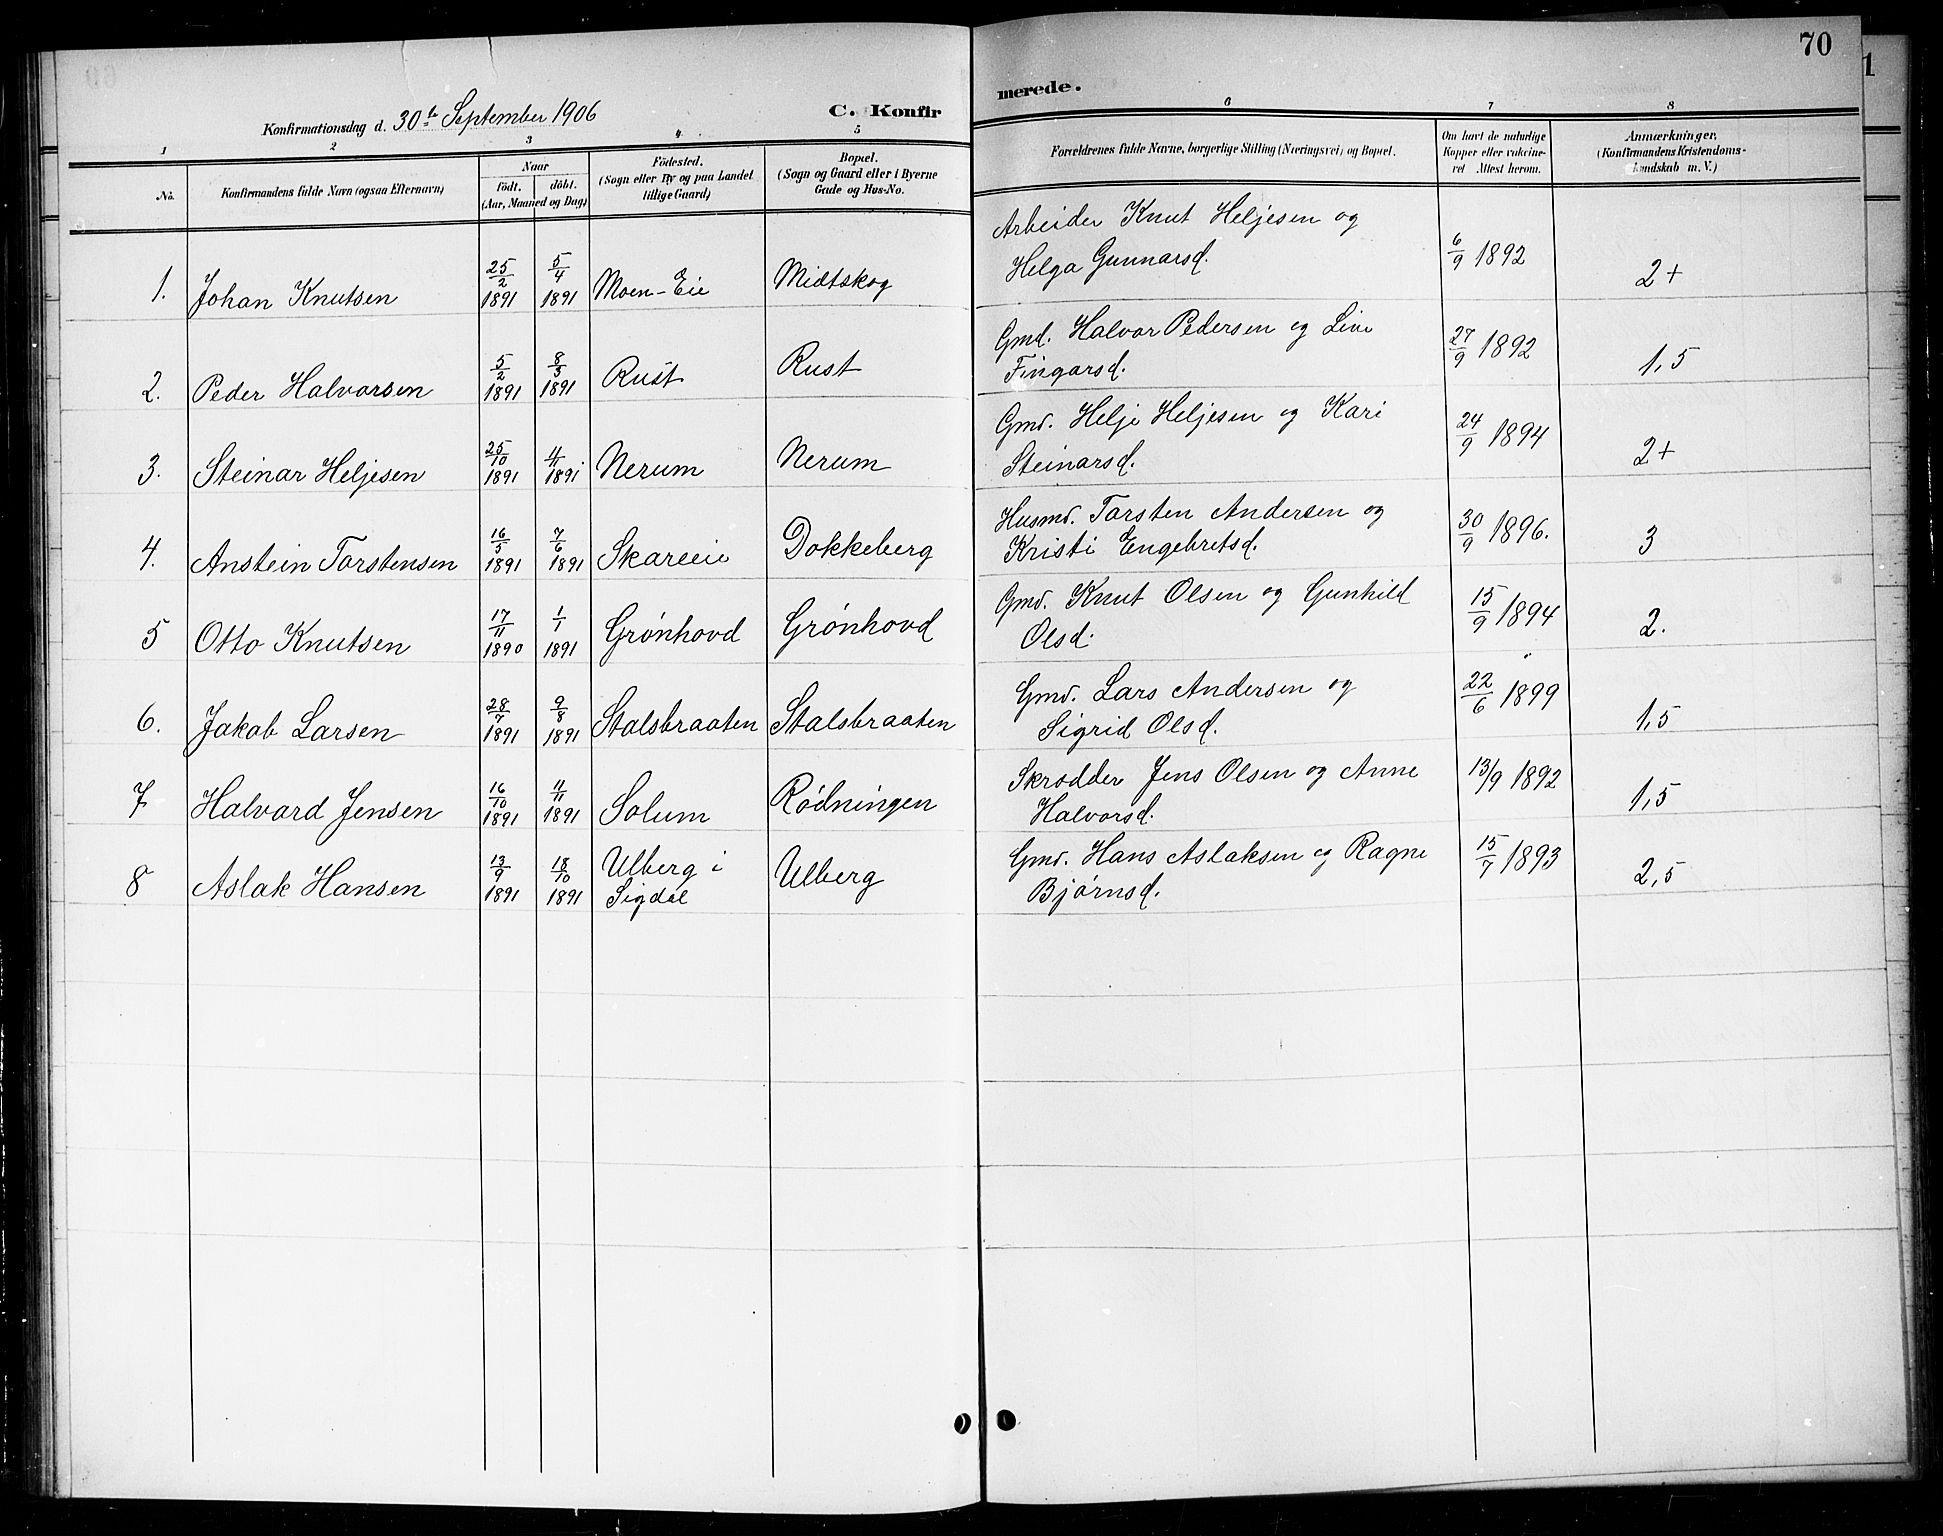 70
1
Konfirmationsdag d. 30te September 1906
C. Konfirmerede.
1 2 3 4 5 6 7 8
No.
Konfirmandens fulde Navn (ogsaa Efternavn)
Naar
født. døbt.
(Aar, Maaned og Dag)
Fødested.
(Sogn eller By og paa Landet
tillige Gaard)
Bopæl.
(Sogn og Gaard eller i Byerne
Gade og Hus-No.
Forældrenes fulde Navne, borgerlige Stilling (Næringsvei) og Bopæl.
Om havt de naturlige
Kopper eller vakcine-
ret. Attest herom.
Anmærkninger.
(Konfirmandens Kristendoms-
kundskab m. V.)
1. Johan Knutsen 25/2 1891 5/4 1891 Moen-Eie Midtskog Arbeider Knut Heljesen og
Helga Gunnarsd. 6/9 1892 2+
2. Peder Halvorsen 5/2 1891 8/3 1891 Rust Rust Gmd. Halvor Pedersen og Live
Fingarsd. 27/9 1892 1,5
3. Steinar Heljesen 25/10 1891 4/11 1891 Nerum Nerum Gmd. Helje Heljesen og Kari
Steinarsd. 24/9 1894 2+
4. Anstein Torstensen 16/5 1891 7/6 1891 Skareeie Dokkeberg Husmd. Torsten Andersen og
Kristi Engebretsd. 30/9 1896. 3
5 Otto Knutsen 17/11 1890 1/1 1891 Grønhovd Grønhovd Gmd. Knut Olsen og Gunhild
Olsd. 15/9 1894 2.
6. Jakob Larsen 28/7 1891 9/8 1891 Stalsbraaten Stalsbraaten Gmd. Lars Andersen og
Sigrid Olsd. 22/6 1899 1,5
7 Halvard Jensen 16/10 1891 11/11 1891 Solum Rødningen Skrædder Jens Olsen og Anne
Halvorsd. 13/9 1892 1,5
8 Aslak Hansen 13/9 1891 18/10 1891 Ulberg i
Sigdal Ulberg Gmd. Hans Aslaksen og Ragne
Bjørnsd. 15/7 1893 2,5